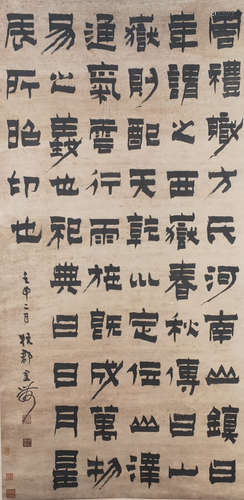 周禮職方氏河南山鎮曰
華謂之西嶽春秋傳曰山
嶽則配天乾巛定位山澤
通氣雲行雨施既成萬物
易之義也祀典曰日月星
辰所昭卬也
壬申二月